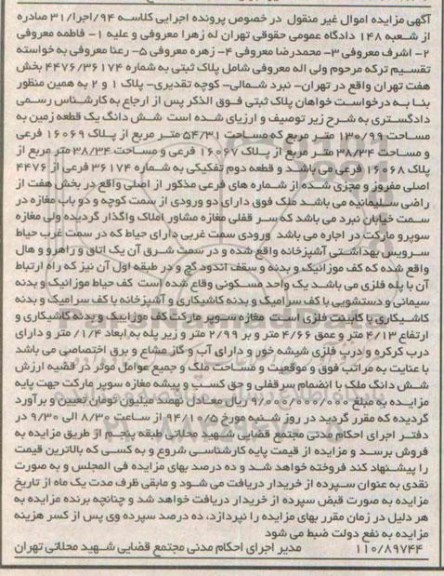 آگهی مزایده اموال غیر منقول در خصوص پرونده اجرایی کلاسه ۹۴/اجرا/۳۱ صادره
از شعبه ۱۴۸ دادگاه عمومی حقوقی تهران له زهرا معروفی و علیه ۱- فاطمه معروفی
۲- اشرف معروفی ۳- محمدرضا معروفی ۴- زهره معروفی ۵- رعنا معروفی به خواسته
تقسیم ترکه مرحوم ولی اله معروفی شامل پلاک ثبتی به شماره ۴۴۷۶/۳۶۱۷۴ بخش
هفت تهران واقع در تهران- نبرد شمالی- کوچه تقدیری- پلاک ۱ و ۲ به همین منظور
بنا به درخواست خواهان پلاک ثبتی فوق الذکر پس از ارجاع به کارشناس رسمی
دادگستری به شرح زیر توصیف و ارزیای شده است شش دانگ یک قطعه زمین به
مساحت ۱۳۰/۹۹ متر مربع که مساحت ۵۴/۳۱ متر مربع از پلاک ۱۶۰۶۹ فرعی
و مساحت ۳۸/۳۴ متر مربع از پلاک ۱۶۰۶۷ فرعی و مساحت ۳۸/۳۴ متر مربع از
پلاک ۱۶۰۶۸ فرعی می باشد و قطعه دوم تفکیکی به شماره ۳۶۱۷۴ فرعی از ۴۴۷۶
اصلی مفروز و مجزی شده از شماره های فرعی مذکور از اصلی واقع در بخش هفت از
راضی سلیمانیه می باشد ملک فوق دارای دو ورودی از سمت کوچه و دو باب مغازه در
سمت خیابان نبرد می باشد که سر قفلی مغازه مشاور املاک واگذار گردیده ولی مغازه
سوپرو مارکت در اجاره می باشد ورودی سمت غربی دارای حیاط که در سمت غرب حیاط
سرویس بهداشتی آشپزخانه واقع شده و در سمت شرق آن یک اتاق و راهرو و هال
واقع شده که کف موزائیک و بدنه و سقف اندود گچ و در طبقه اول آن نیز که راه ارتباط
آن با پله فلزی می باشد یک واحد مسکونی وقاع شده است کف حیاط موزائیک و بدنه
سیمانی و دستشویی با کف سرامیک و بدنه کاشیکاری و آشپزخانه با کف سرامیک و بدنه
کاشیکاری با کابینت فلزی است مغازه سوپر مارکت کف موزاییک و بدنه کاشیکاری و
ارتفاع ۴/۱۳ متر و عمق ۴/۶۶ متر و بر ۲/۹۹ متر و زیر پله به ابعاد ۱/۴ متر و دارای
درب کرکره و درب فلزی شیشه خور و دارای آب و گاز مشاع و برق اختصاصی می باشد
با عنایت به مراتب فوق و موقعیت و مساحت ملک و جمیع عوامل موثر در قضیه ارزش
شش دانگ ملک با انضمام سرقفلی و حق کسب و پیشه مغازه سوپر مارکت جهت پایه
مزایده به مبلغ ۹/۰۰۰/۰۰۰/۰۰۰ ریال معادل نهصد میلیون تومان تعیین و برآورد
گردیده که مقرر گردید در روز شنبه مورخ ۹۴/۱۰/۲۶ از ساعت ۸/۳۰ الی ۹/۳۰ در
دفتر اجرای احکام مدنی مجتمع قضایی شهید محلاتی طبقه پنجم از طریق مزایده به
فروش برسد و مزایده از قیمت پایه کارشناسی شروع و به کسی که بالاترین قیمت
را پیشنهاد کند فروخته خواهد شد و ده درصد بهای مزایده فی المجلس و به صورت
نقدی به عنوان سپرده از خریدار دریافت می شود و مابقی ظرف مدت یک ماه از تاریخ
مزایده به صورت قبض سپرده از خریدار دریافت خواهد شد و چنانچه برنده مزایده به
هر دلیل در زمان مقرر بهای مزایده را نپردازد، ده درصد سپرده وی پس از کسر هزینه
مزایده به نفع دولت ضبط می شود
۱۱۰/۸۹۷۴۴ مدیر اجرای احکام مدنی مجتمع قضایی شهید محلاتی تهران